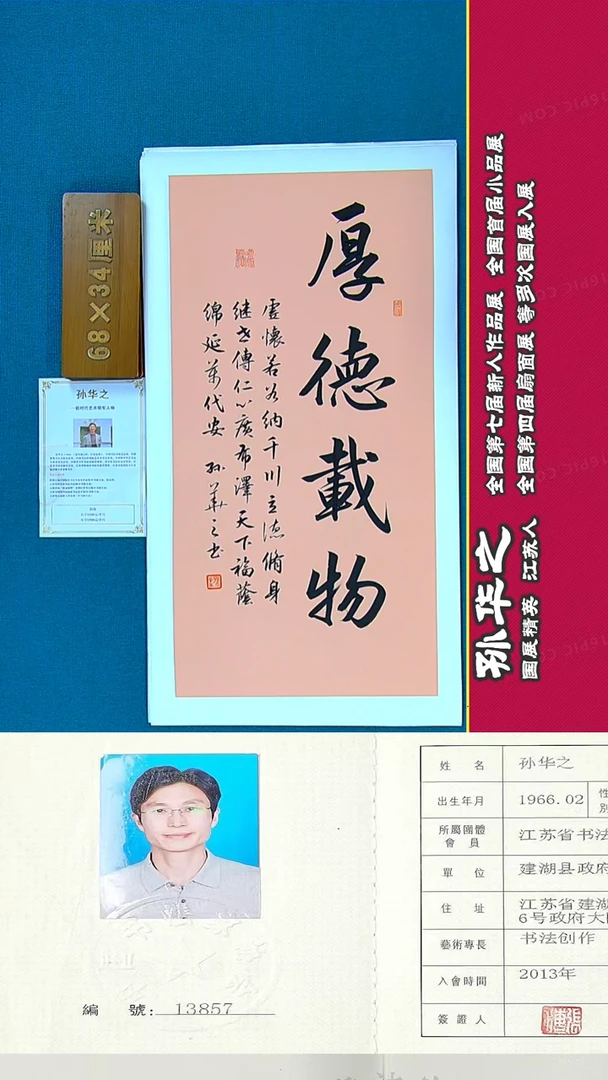 68×34厘米
孙华之
厚德載物
虛懷若谷納千川立德脩身
继世傳仁心廣布澤天下福蔭
绵延萬代安 孙華之书
全国第七届新人作品展 全国首届小品展
全国第四届扇面展 等多次国展入展
孙华之
国展精英 江苏人
編 號: 13857
姓 名 孙华之
出生年月 1966.02 性別
所屬團體會員 江苏省书法
單 位 建湖县政府
住 址 江苏省建湖
6号政府大
藝術專長 书法创作
入會時間 2013年
簽證人